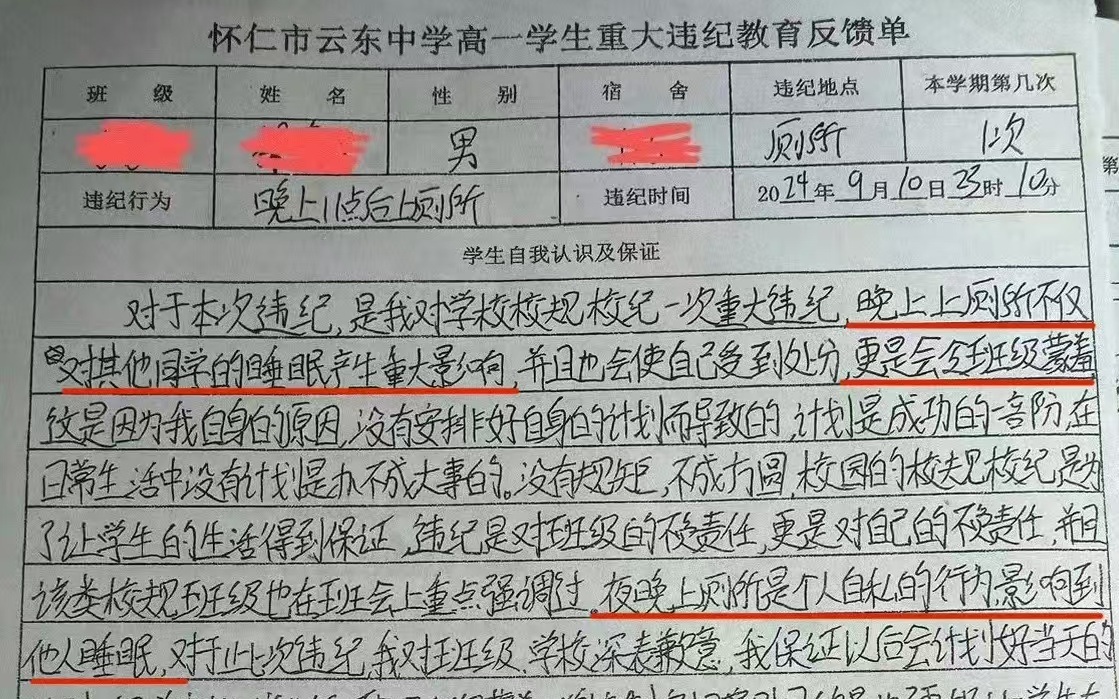 怀仁市云东中学高一学生重大违纪教育反馈单
班 级 姓 名 性 别 宿 舍 违纪地点 本学期第几次
男 厕所 1次
违纪行为 晚上11点后上厕所 违纪时间 2024年9月10日23时10分
学生自我认识及保证
对于本次违纪,是我对学校校规校纪一次重大违纪,晚上上厕所不仅
对其他同学的睡眠产生重大影响,并且也会使自己受到处分,更是会令班级蒙羞
这是因为我自身的原因,没有安排好自身的计划而导致的,计划是成功的一部份,在
日常生活中没有计划是办不成大事的。没有规矩,不成方圆,校园的校规校纪是为
了让学生的生活得到保证,违纪是对班级的不负责任,更是对自己的不负责任,并且
该类校规班级也在班会上重点强调过,夜晚上厕所是个人自私的行为影响到
他人睡眠,对于此次违纪,我对班级、学校深表歉意,我保证以后会计划好当天的
第